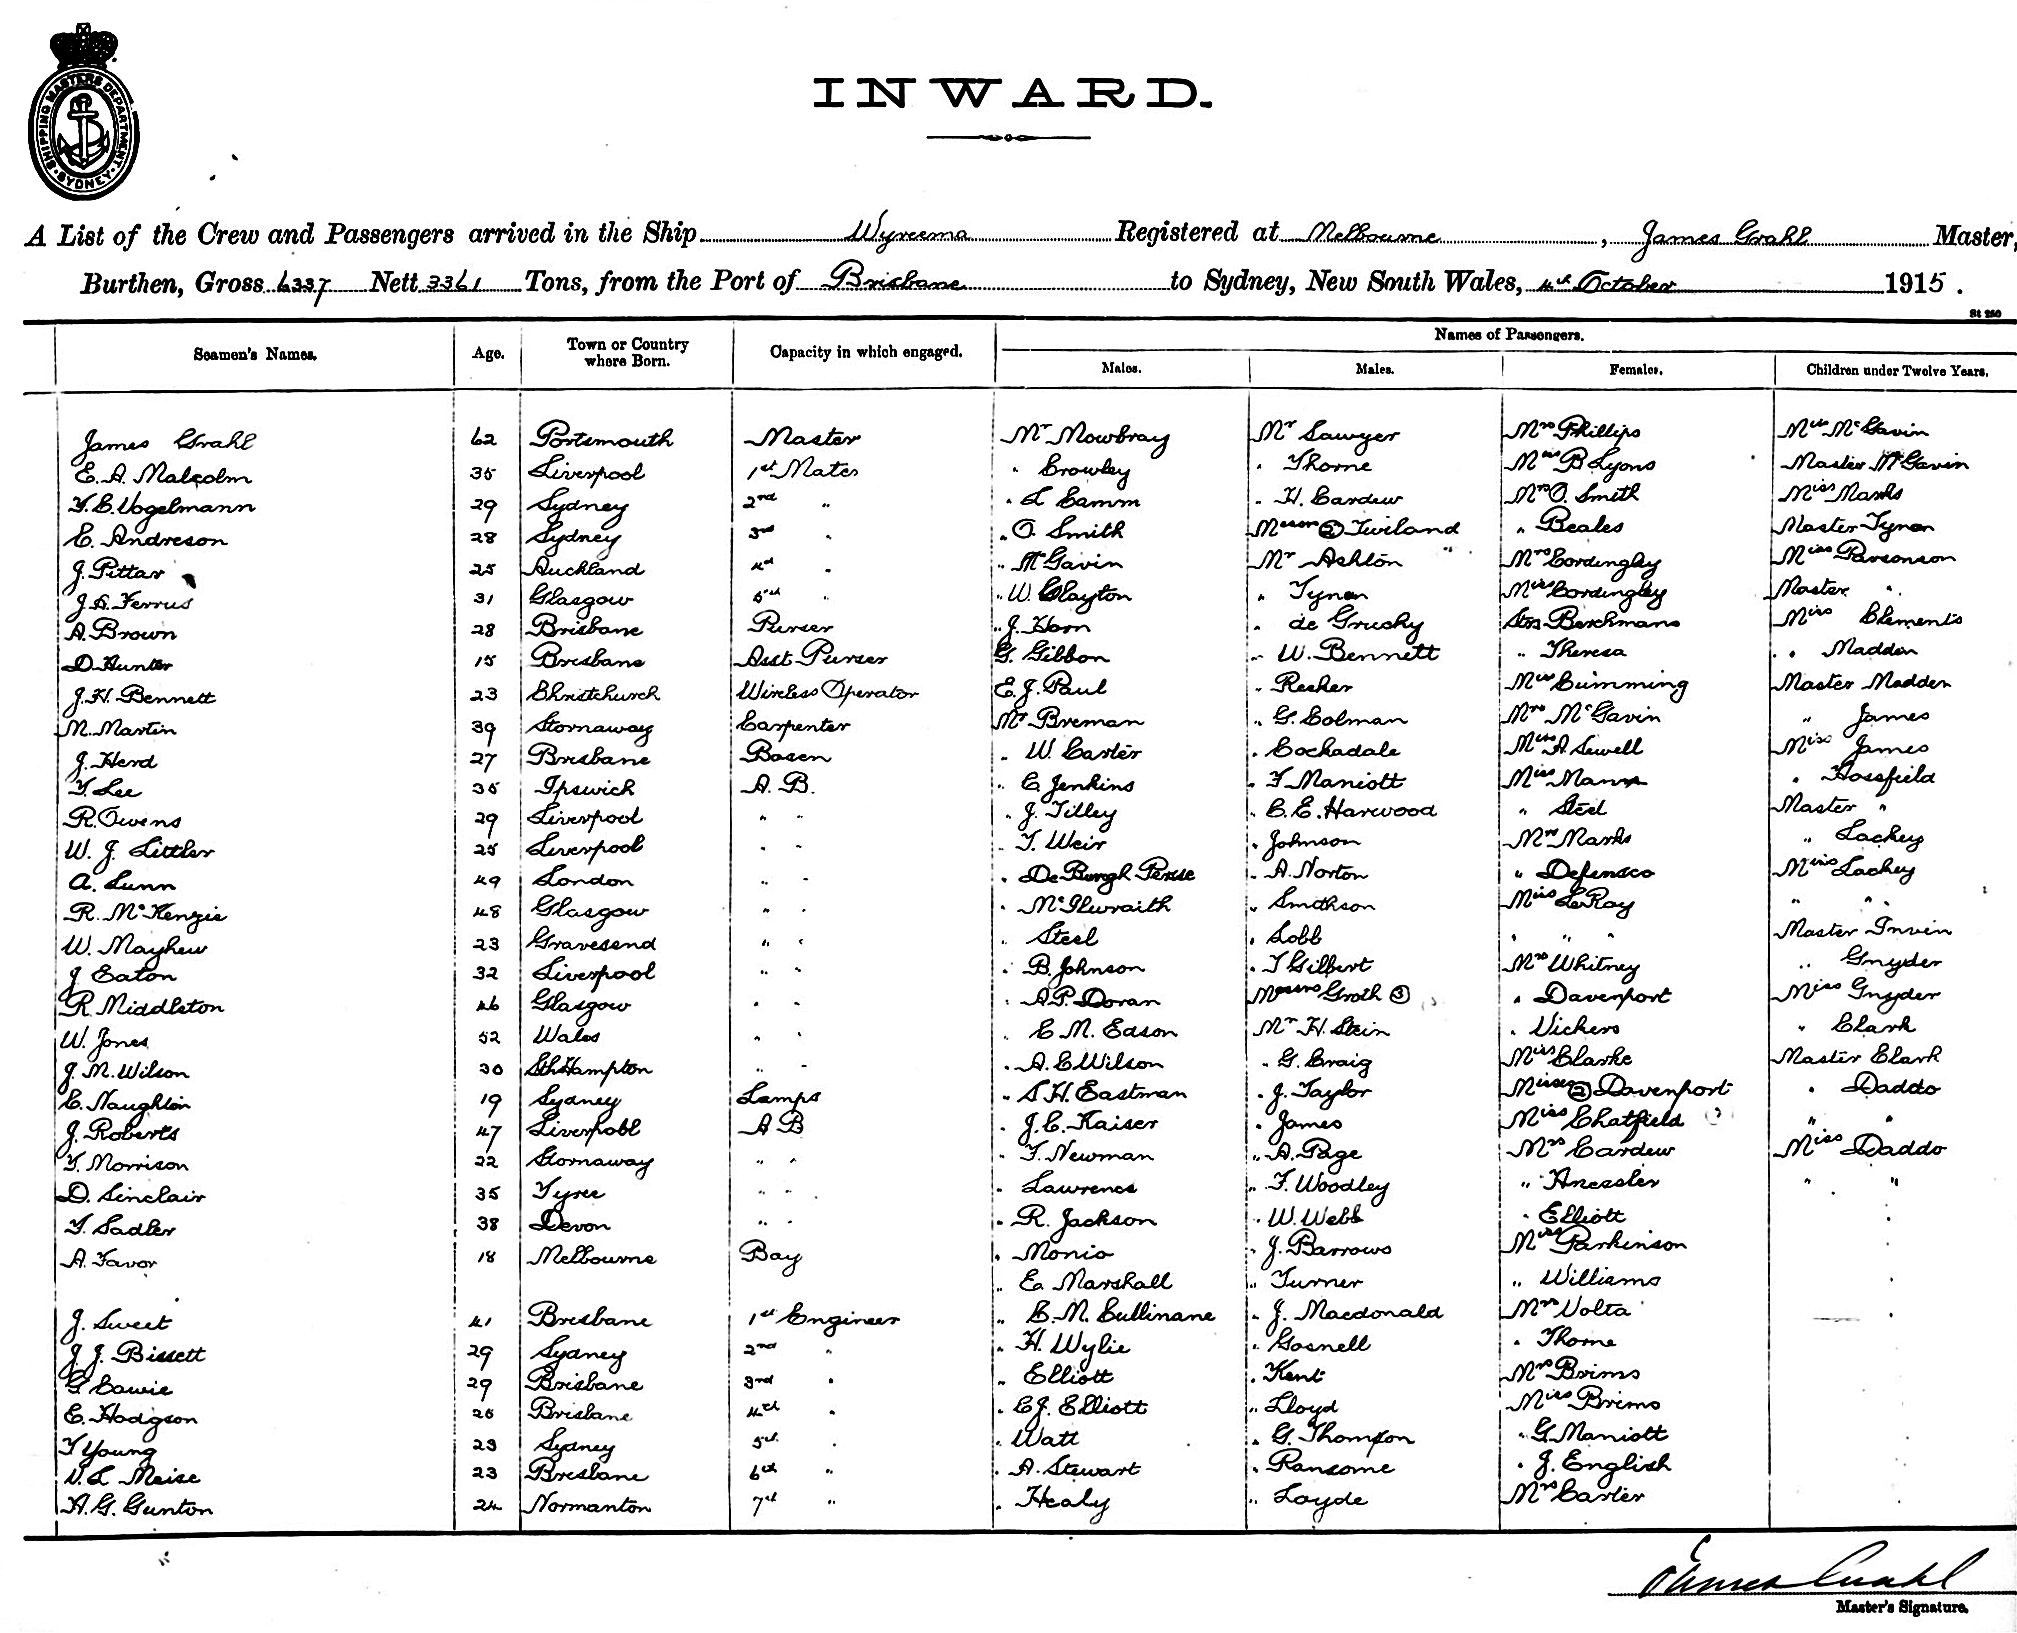 SHIPPING MASTERS DEPARTMENT
SYDNEY
INWARD.
A List of the Crew and Passengers arrived in the Ship Wyreema Registered at Melbourne, James Grahl Master,
Burthen, Gross 6337 Nett 3361 Tons, from the Port of Brisbane to Sydney, New South Wales, 4th October 1915.
St 250
Seamen's Names. Age. Town or Country where Born. Capacity in which engaged. Names of Passengers.
Males. Males. Females. Children under Twelve Years.
James Grahl 62 Portsmouth Master Mr Mowbray Mr Sawyer Mrs Phillips Miss McGavin
E. A. Malcolm 35 Liverpool 1st Mate " Crowley " Thorne Miss B Lyons Master McGavin
F. C. Vogelmann 29 Sydney 2nd " " L Camm " H. Cardew Mrs O. Smith Miss Marks
E. Andreson 28 Sydney 3rd " " O. Smith Messrs (2) Twiland " Beales Master Tynan
J. Pittar 25 Auckland 4th " " McGavin Mr Ashton Mrs Cordingley Miss Parsonson
J. A. Ferrus 31 Glasgow 5th " " W. Clayton " Tynan Miss Cordingley Master "
A. Brown 28 Brisbane Purser " J. Horn " de Grushy Strs Berchmans Miss Clements
D. Hunter 15 Brisbane Asst Purser G. Gibbon " W. Bennett " Theresa " Madden
J. H. Bennett 23 Christchurch Wireless Operator E. J. Paul " Reeker Miss Cumming Master Madden
M. Martin 39 Stornaway Carpenter Mr Breman " G. Colman Mrs McGavin " James
J. Herd 27 Brisbane Bosen " W. Carter " Cockadale Miss A Sewell Miss James
T. Lee 35 Ipswich A. B. " C. Jenkins " F Maniott Miss Mann " Hossfield
R. Owens 29 Liverpool " " " J. Tilley " C. E. Harwood " Steel Master "
W. J. Littler 25 Liverpool " " " T. Weir " Johnson Mrs Marks " Lackey
A. Lunn 49 London " " " De Burgh Perse " A. Norton " Defensco Miss Lackey
R. McKenzie 48 Glasgow " " " McIlwraith " Smithson Miss LeRay " "
W. Mayhew 23 Gravesend " " " Steel " Lobb " " " Master Irvin
J Eaton 32 Liverpool " " " B. Johnson " T Gilbert Mrs Whitney " Gnyder
R. Middleton 46 Glasgow " " " A. P. Doran Messrs Groth (3) " Davenport Miss Gnyder
W. Jones 52 Wales " " " C. M. Edson Mr H. Stein " Vickers " Clark
J. M. Wilson 30 Sth Hampton " " " A. C Wilson " G. Craig Miss Clarke Master Clark
C. Naughton 19 Sydney Lamps " S. H. Eastman " J. Taylor Misses (2) Davenport " Daddo
J. Roberts 47 Liverpool A B " J. C. Kaiser " James Miss Chatfield " "
T. Morrison 22 Stornaway " " " F. Newman " A. Page Mrs Cardew Miss Daddo
D. Sinclair 35 Tyree " " " Lawrence " F. Woodley " Anessler " "
F. Sadler 38 Devon " " " R. Jackson " W. Webb " Elliott
A. Favor 18 Melbourne Boy " Monio " J. Barrows Miss Parkinson
" Ed. Marshall " Turner " Williams
J. Sweet 41 Brisbane 1st Engineer " C. M. Cullinane " J. Macdonald Mrs Volta
J. J. Bissett 29 Sydney 2nd " " H. Wylie " Gosnell " Thorne
G Cowie 29 Brisbane 3rd " " Elliott " Kent Mrs Brims
E. Hodgson 26 Brisbane 4th " " C. J. Elliott " Lloyd Miss Brims
T Young 23 Sydney 5th " " Watt " G. Thompson " G. Maniott
V. L Meise 23 Brisbane 6th " " A. Stewart " Ransome " J. English
A. G. Gunton 24 Normanton 7th " " Healy " Loyde Mrs Carter
James Grahl
Master's Signature.